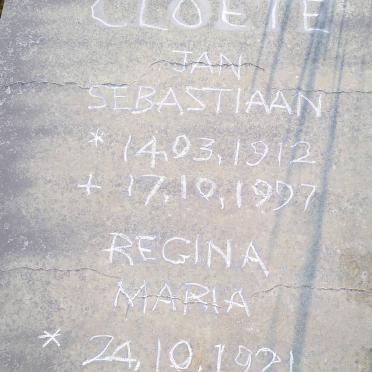 CLOETE
JAN
SEBASTIAAN
* 14.03.1912
+ 17.10.1997
REGINA
MARIA
* 24.10.1921